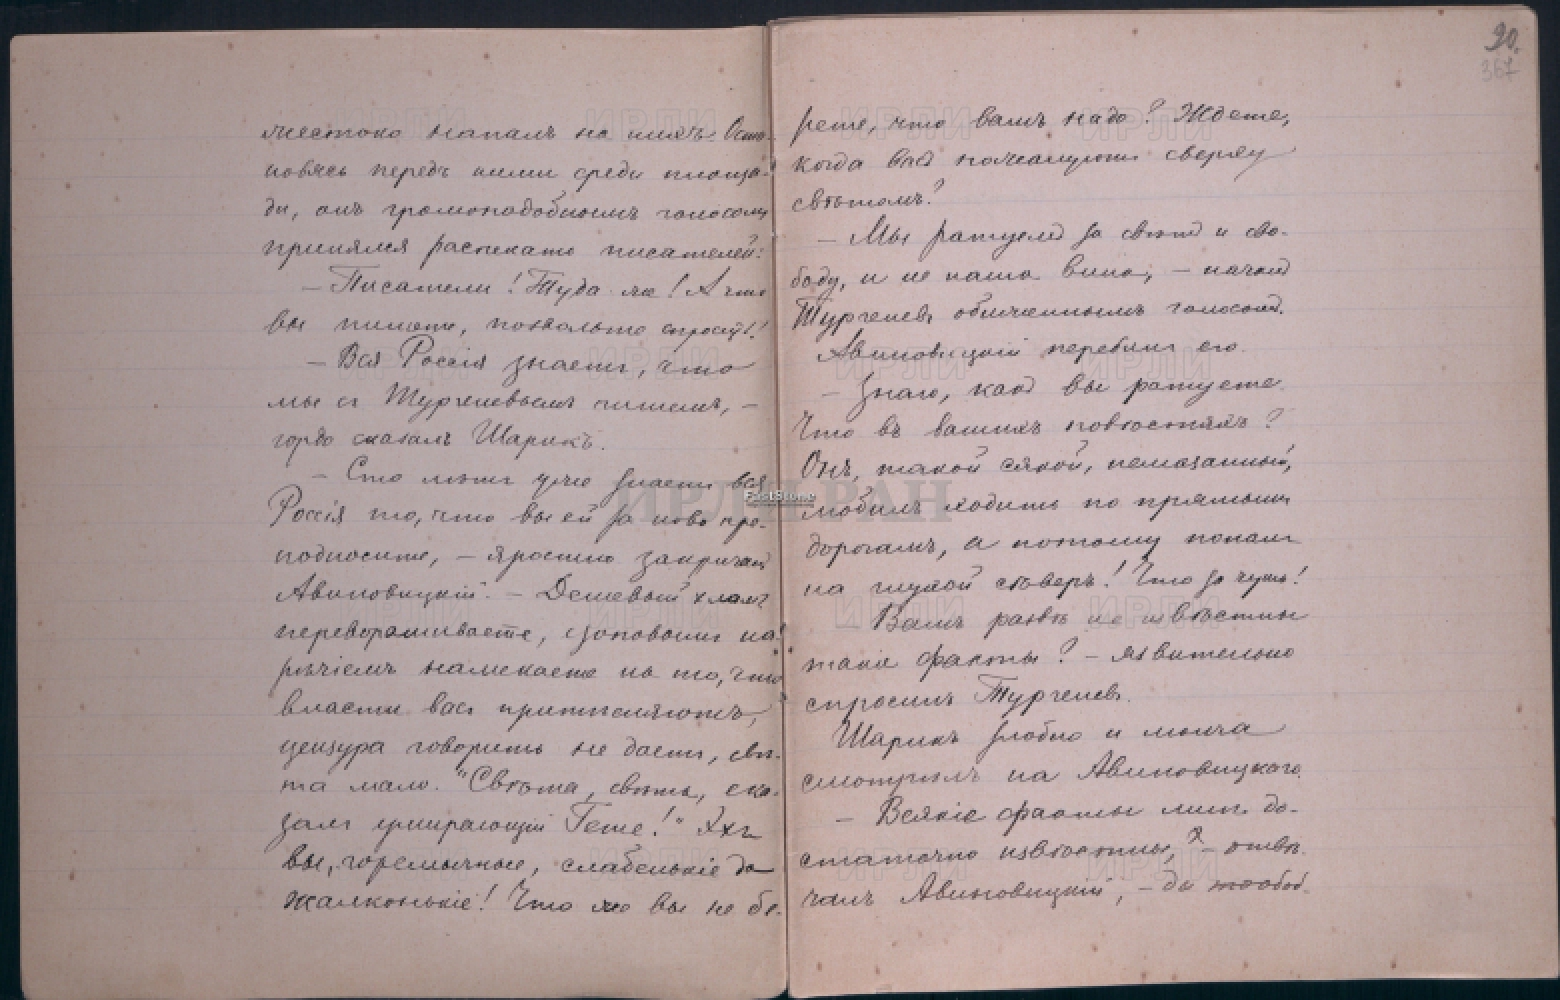 жестоко напалъ на нихъ. Оста-
новясь передъ ними среди площа-
ди, онъ громоподобнымъ голосомъ
принялся распекать писателей:
— Писатели! Туда же! А что
вы пишете, позвольте спросить!
— Вся Россія знаетъ, что
мы съ Тургеневымъ пишемъ, —
гордо сказалъ Шарикъ.
— Сто лѣтъ уже знаетъ вся
Россія то, что вы ей за ново пре-
подносите, — яростно закричалъ
Авиновицкій. — Дешевый хламъ
перевораживаете, эзоповымъ на-
рѣчіемъ намекаете на то, что
власти васъ притѣсняютъ,
цензура говорить не даетъ, свѣ-
та мало. "Свѣта, свѣта, ска-
залъ умирающій Гете!" Эхъ
вы, горемычные, слабенькіе да
жалконькіе! Что же вы не бе-
90.
367
рете, что вамъ надо? Ждете,
когда васъ пожалуютъ сверху
свѣтомъ?
— Мы ратуемъ за свѣтъ и сво-
боду, и не наша вина, — началъ
Тургеневъ обиженнымъ голосомъ.
Авиновицкій перебилъ его.
— Знаю, какъ вы ратуете.
Что въ вашихъ повѣстяхъ?
Онъ, такой сякой, немазанный,
любилъ ходить по прямымъ
дорогамъ, а потому попалъ
на глухой сѣверъ! Что за чушь!
Вамъ развѣ не извѣстны
такіе факты? — язвительно
спросилъ Тургеневъ.
Шарикъ злобно и молча
смотрѣлъ на Авиновицкаго.
— Всякіе факты мнѣ до-
статочно извѣстны, — отвѣ-
чалъ Авиновицкій, — да
ИРЛИ РАН
ИРЛИ
FastStone